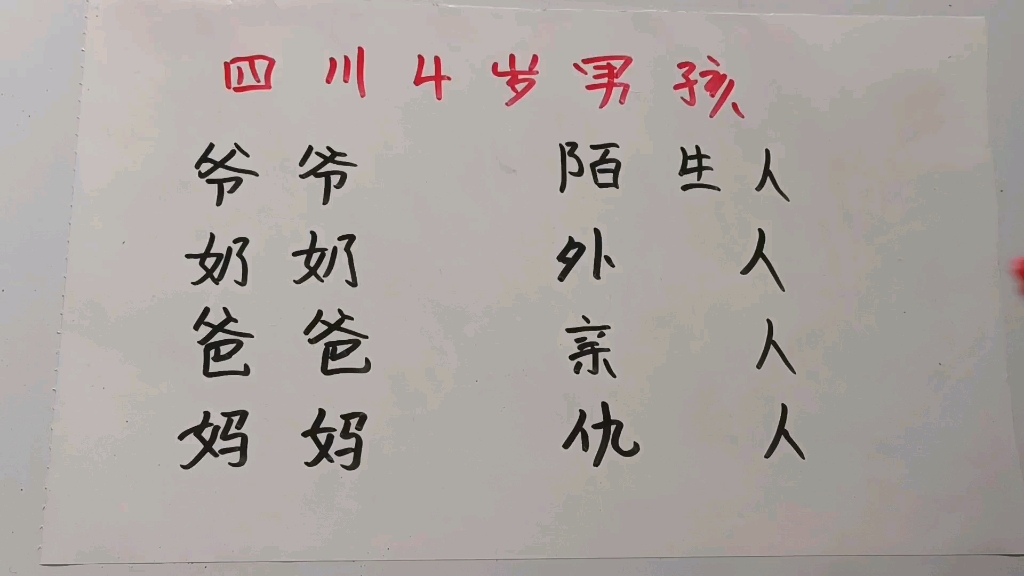 四川4岁男孩
爷爷 陌生人
奶奶 外人
爸爸 亲人
妈妈 仇人